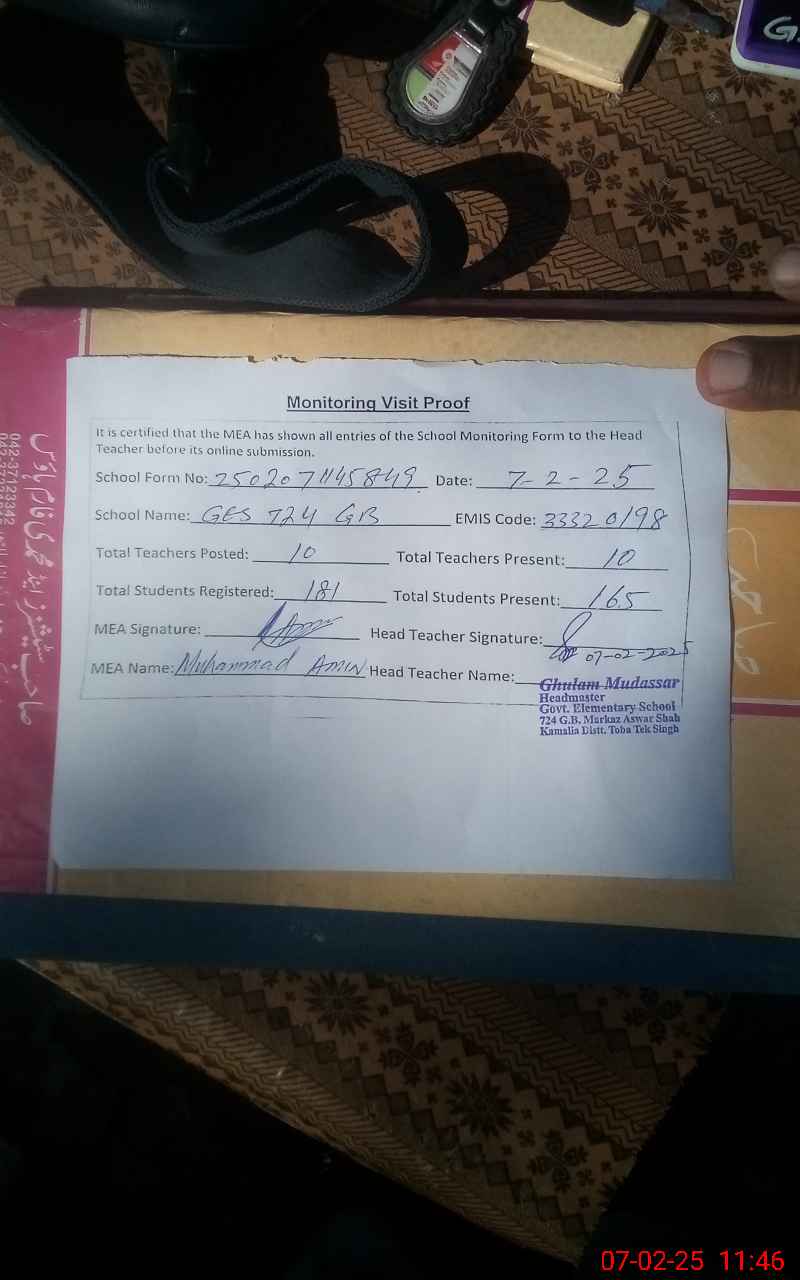 G.
Monitoring Visit Proof
It is certified that the MEA has shown all entries of the School Monitoring Form to the Head
Teacher before its online submission.
School Form No: 2502071145849 Date: 7-2-25
School Name: GES 724 GB EMIS Code: 33320198
Total Teachers Posted: 10 Total Teachers Present: 10
Total Students Registered: 181 Total Students Present: 165
MEA Signature: Head Teacher Signature:
07-02-2025
MEA Name: Muhammad AMIN Head Teacher Name:
Ghulam Mudassar
Headmaster
Govt. Elementary School
724 G.B. Markaz Aswar Shah
Kamalia Distt. Toba Tek Singh
042-37123342
07-02-25 11:46